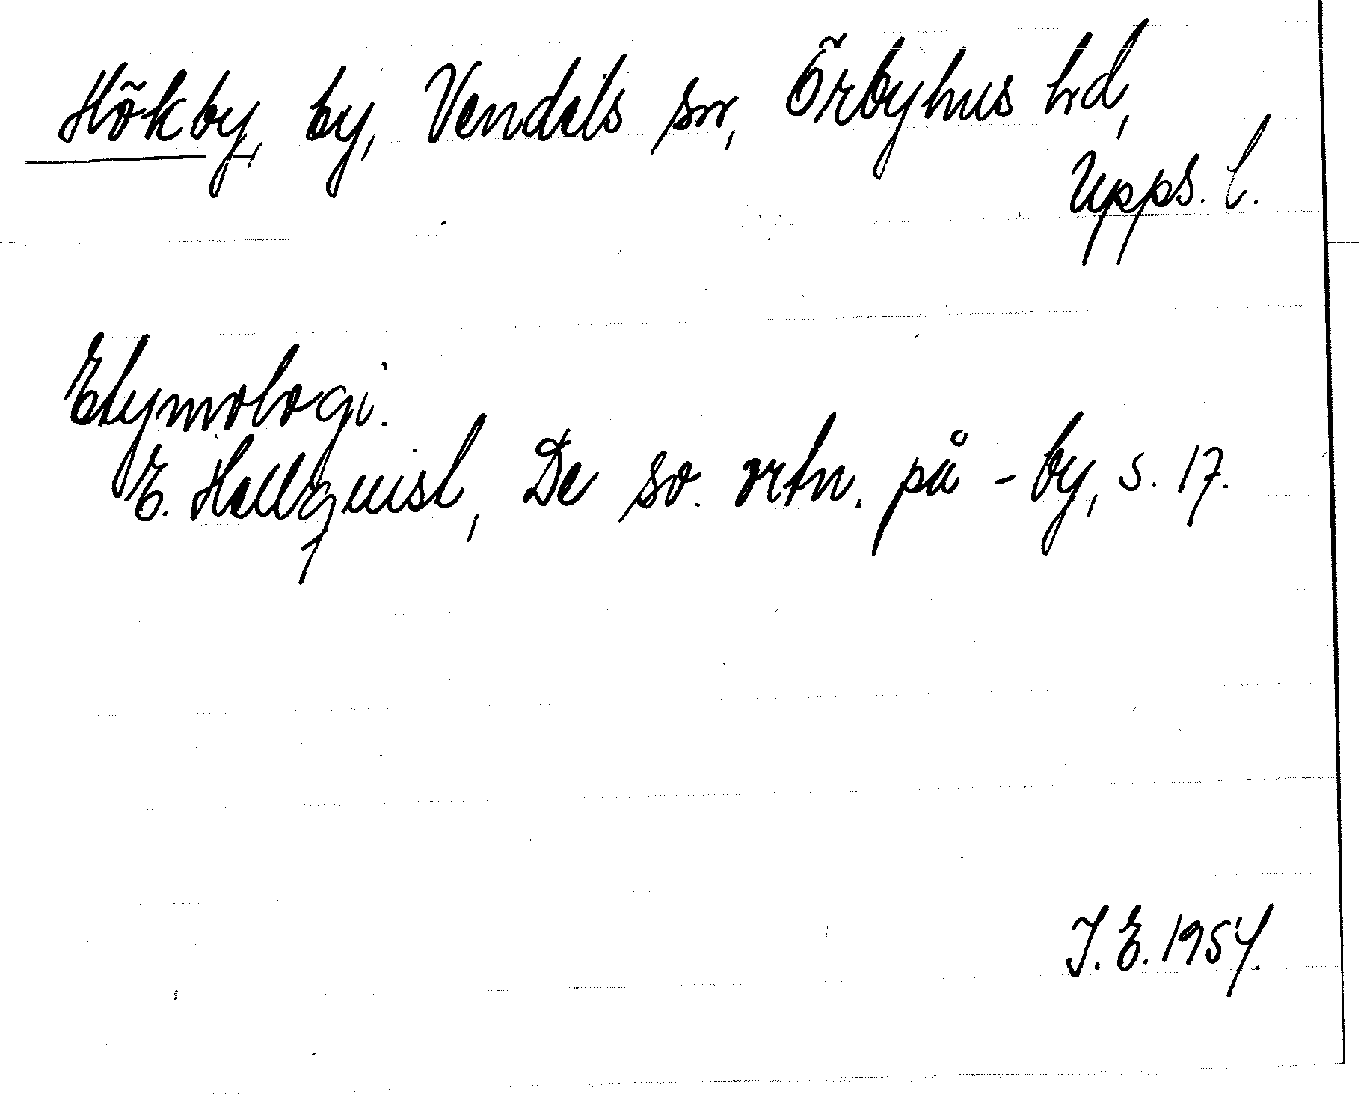 Hökby, by, Vendels sn, Örbyhus hd,
Upps. l.
Etymologi.
E. Hellquist, De sv. ortn. på -by, s. 17.
J. E. 1954.